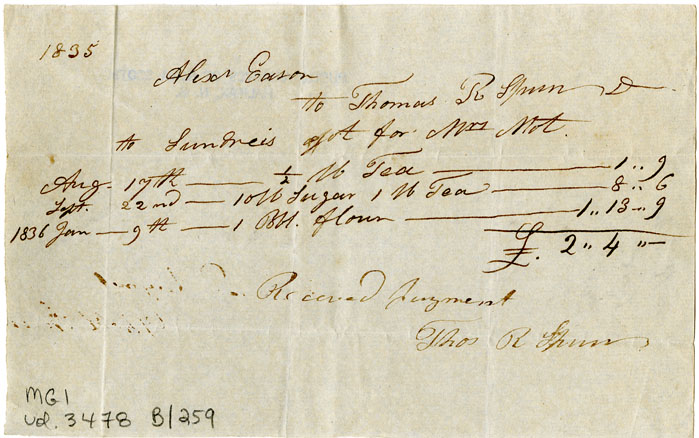 1835
Alexr Eason
to Thomas R Spurr Dr
to Sundreis got for Mrs Mot.
Aug. 17th — 1/2 lb Tea — 1 ,, 9
Sept. 22nd — 10 lb Sugar 1 lb Tea — 8 ,, 6
1836 Jan — 9th — 1 Bbl. flour — 1 ,, 13 ,, 9
£. 2 ,, 4 ,, —
Receved payment
Thos R Spurr
MG1
Vol. 3478 B/259